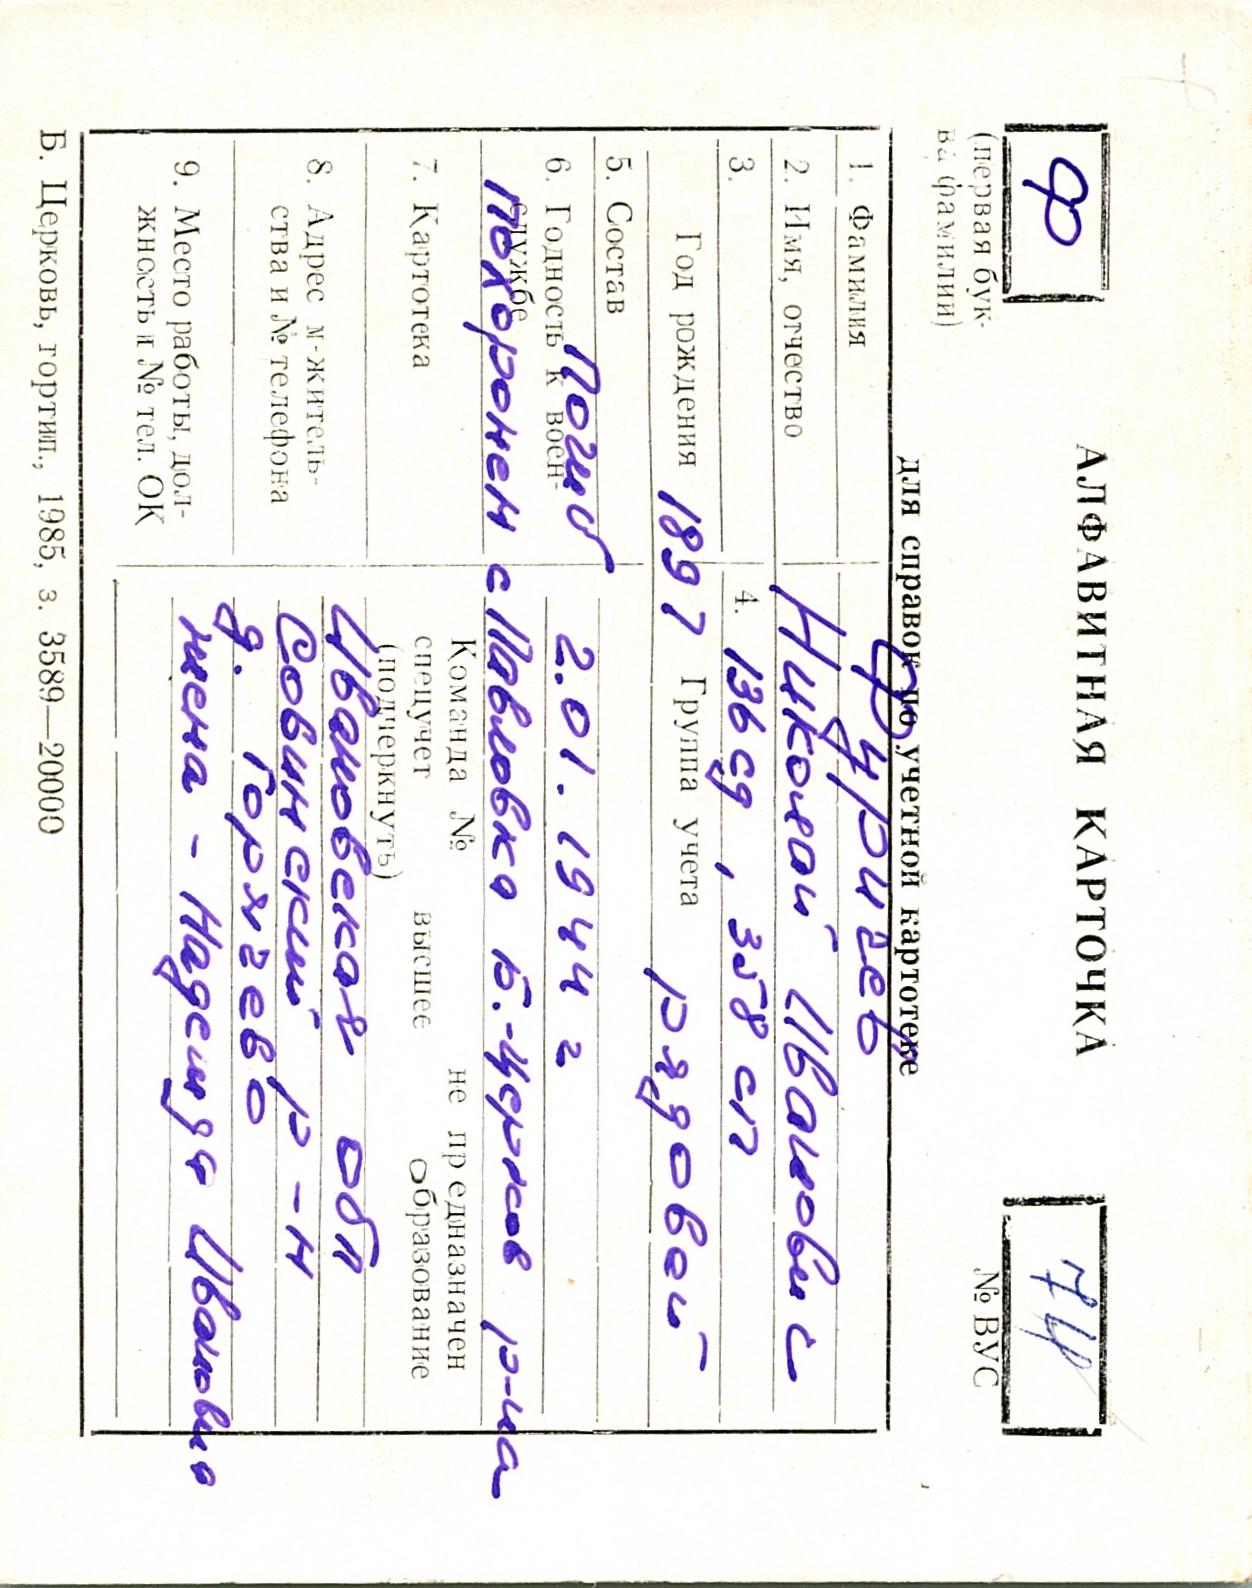 Ф
(первая бук-
ва фамилии)
АЛФАВИТНАЯ КАРТОЧКА
для справок по учетной картотеке
74
№ ВУС
1. Фамилия Фуричев
2. Имя, отчество Николай Иванович
3. 4. 136 сд, 358 сп
Год рождения 1897 Группа учета рядовой
5. Состав
Погиб 2.01.1944 г
6. Годность к воен-
службе
Похоронен с Павловка Б.-Церков р-на
Команда № не предназначен
7. Картотека спецучет высшее образование
(подчеркнуть)
8. Адрес м-житель-
ства и № телефона
Ивановская обл
Совинский р-н
д. Горячево
9. Место работы, дол-
жность и № тел. ОК
жена - Надежда Ивановна
Б. Церковь, гортип., 1985, з. 3589—20000